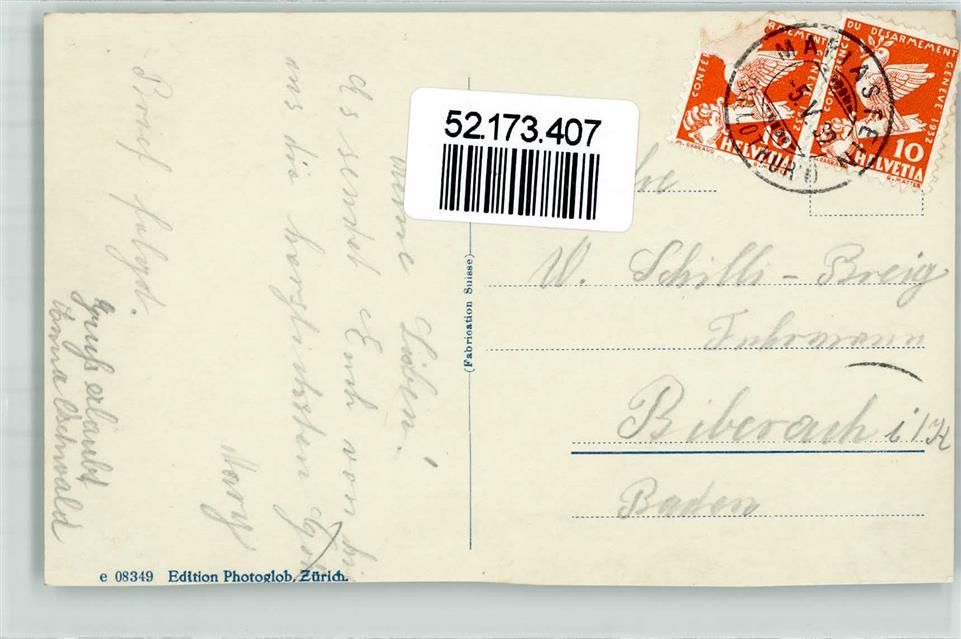 52.173.407
CONFÉRENCE DU DÉSARMEMENT GENÈVE 1932
10
HELVETIA
M. BARRAUD
G. MATTER
DU DÉSARMEMENT GENÈVE 1932
10
HELVETIA
BARRAUD
G. MATTER
MARIASTEIN
5.V.32
(SOLOTHURN)
W. Schilli - Breig
Fuhrmann
Biberach i/K
Baden
(Fabrication Suisse)
Meine Lieben!
Es sendet Euch von hier
aus die herzlichsten Grüße
Mary
Brief folgt.
Gruß erlaubt
Anna Oschwald
e 08349 Edition Photoglob, Zürich.